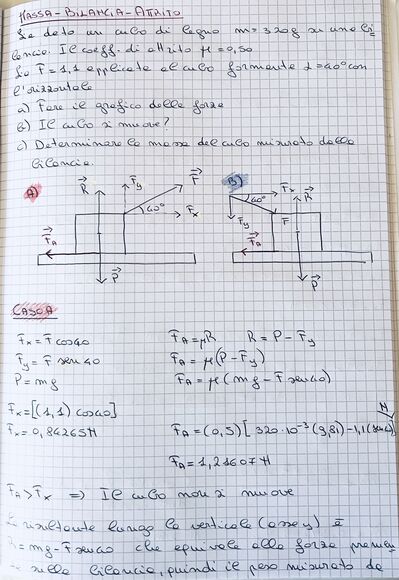 MASSA-BILANCIA-ATTRITO
Sia dato un cubo di legno m=320g su una bi
lancia. Il coeff. di attrito μ=0,50
La F=1,1 applicata al cubo formante α=40° con
l'orizzontale
a) Fare il grafico delle forze
b) Il cubo si muove?
c) Determinare la massa del cubo misurata dalla
bilancia.
A) R Fy F 40° Fx FA P
B) Fx 40° R Fy F FA P
CASO A
Fx = F cos40 FA = μR R = P - Fy
Fy = F sen40 FA = μ(P-Fy)
P = mg FA = μ(mg - F sen40)
Fx = [(1,1) cos40] N
Fx = 0,84265N FA = (0,5)[320·10⁻³(9,81)-1,1(sen40)
FA = 1,21607N
FA > Fx ⇒ Il cubo non si muove
La risultante lungo la verticale (asse y) è
R = mg - F sen40 che equivale alla forza
sulla bilancia, quindi il peso misurato da